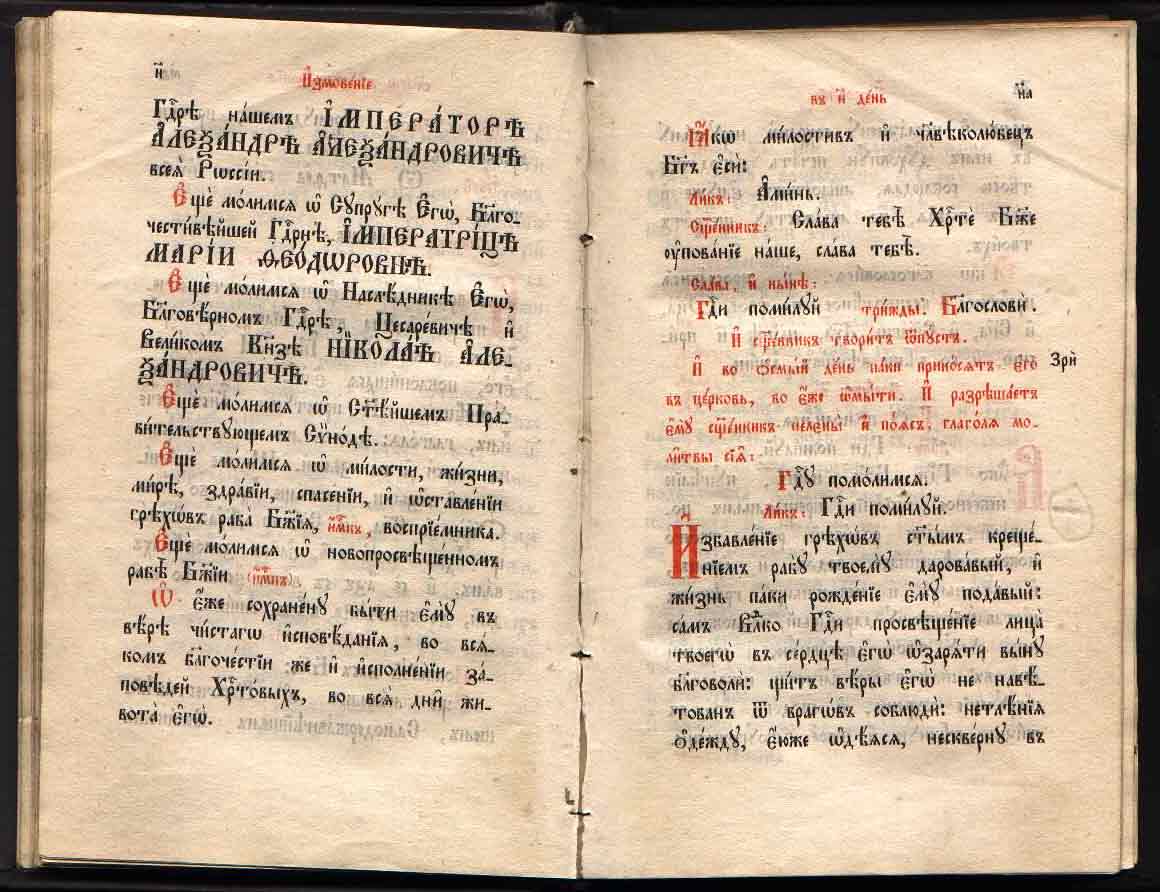 н҃
И҆змове́нїе
Гдⷭ҇рѣ на́шемъ І҆МПЕРА́ТОРѢ
А҆ЛЕѮА́НДРѢ А҆ЛЕѮА́НДРОВИЧѢ
всеѧ̀ Рѡссі́и.
Е҆щѐ мо́лимсѧ ѡ҆ Сꙋпрꙋ́гѣ Е҆гѡ̀, Бл҃го-
чести́вѣйшей Гдⷭ҇рнѣ, І҆МПЕРАТРІ́ЦѢ
МАРІ́И Ѳ҆ЕО́ДѠРОВНѢ.
Е҆щѐ мо́лимсѧ ѡ҆ Наслѣ́дникѣ Е҆гѡ̀,
Бл҃говѣ́рномъ Гдⷭ҇рѣ, Цесаре́вичѣ и҆
Вели́комъ Кнѧ́зѣ НІКОЛА́Ѣ А҆ЛЕ-
ѮА́НДРОВИЧѢ.
Е҆щѐ мо́лимсѧ ѡ҆ Ст҃ѣ́йшемъ Пра-
ви́тельствꙋющемъ Сѷно́дѣ.
Е҆щѐ мо́лимсѧ ѡ҆ ми́лости, жи́зни,
ми́рѣ, здра́вїи, спасе́нїи, и҆ ѡ҆ставле́нїи
грѣхѡ́въ раба̀ Бж҃їѧ, и҆́м҃къ, воспрїе́мника.
Е҆щѐ мо́лимсѧ ѡ҆ новопросвѣще́нномъ
рабѣ̀ Бж҃їи (и҆́м҃къ)
Ѡ҆ е҆́же сохране́нꙋ бы́ти є҆мꙋ̀ въ
вѣ́рѣ чи́стагѡ и҆сповѣ́данїѧ, во всѧ́-
комъ бл҃гоче́стїи же и҆ и҆сполне́нїи за́-
повѣдей Хрⷭ҇то́выхъ, во всѧ̀ дни̑ жи-
вота̀ є҆гѡ̀.
въ и҃ де́нь
н҃а
Ꙗ҆́кѡ ми́лостивъ и҆ чл҃вѣколю́бецъ
Бг҃ъ є҆сѝ:
Ли́къ: А҆ми́нь.
Сщ҃е́нникъ: Сла́ва тебѣ̀ Хрⷭ҇тѐ Бж҃е
ᲂу҆пова́нїе на́ше, сла́ва тебѣ̀.
Сла́ва, и҆ ны́нѣ:
Гдⷭ҇и поми́лꙋй три́жды. Бл҃гословѝ.
И҆ сщ҃е́нникъ твори́тъ ѿпꙋ́стъ.
И҆ во ѻ҆смы́й де́нь па́ки прино́сѧтъ є҆го̀
Зрѝ
въ це́рковь, во є҆́же ѡ҆мы́ти. И҆ разрѣша́етъ
є҆мꙋ̀ сщ҃е́нникъ пелены̀ и҆ по́ѧсъ, глаго́лѧ мо-
ли́твы сїѧ̑:
Гдⷭ҇ꙋ помо́лимсѧ.
Ли́къ: Гдⷭ҇и поми́лꙋй.
И҆збавле́нїе грѣхѡ́въ ст҃ы́мъ креще́-
нїемъ рабꙋ̀ твоемꙋ̀ дарова́вый, и҆
жи́знь па́ки рожде́нїе є҆мꙋ̀ пода́вый:
са́мъ влⷣко Гдⷭ҇и просвѣще́нїе лица̀
твоегѡ̀ въ се́рдцѣ є҆гѡ̀ ѡ҆зарѧ́ти вы́нꙋ
бл҃говолѝ: щи́тъ вѣ́ры є҆гѡ̀ не навѣ́-
тованъ ѿ врагѡ́въ соблюдѝ: нетлѣ́нїѧ
ѻ҆де́ждꙋ, є҆́юже ѡ҆дѣ́ѧсѧ, нескве́рнꙋ въ